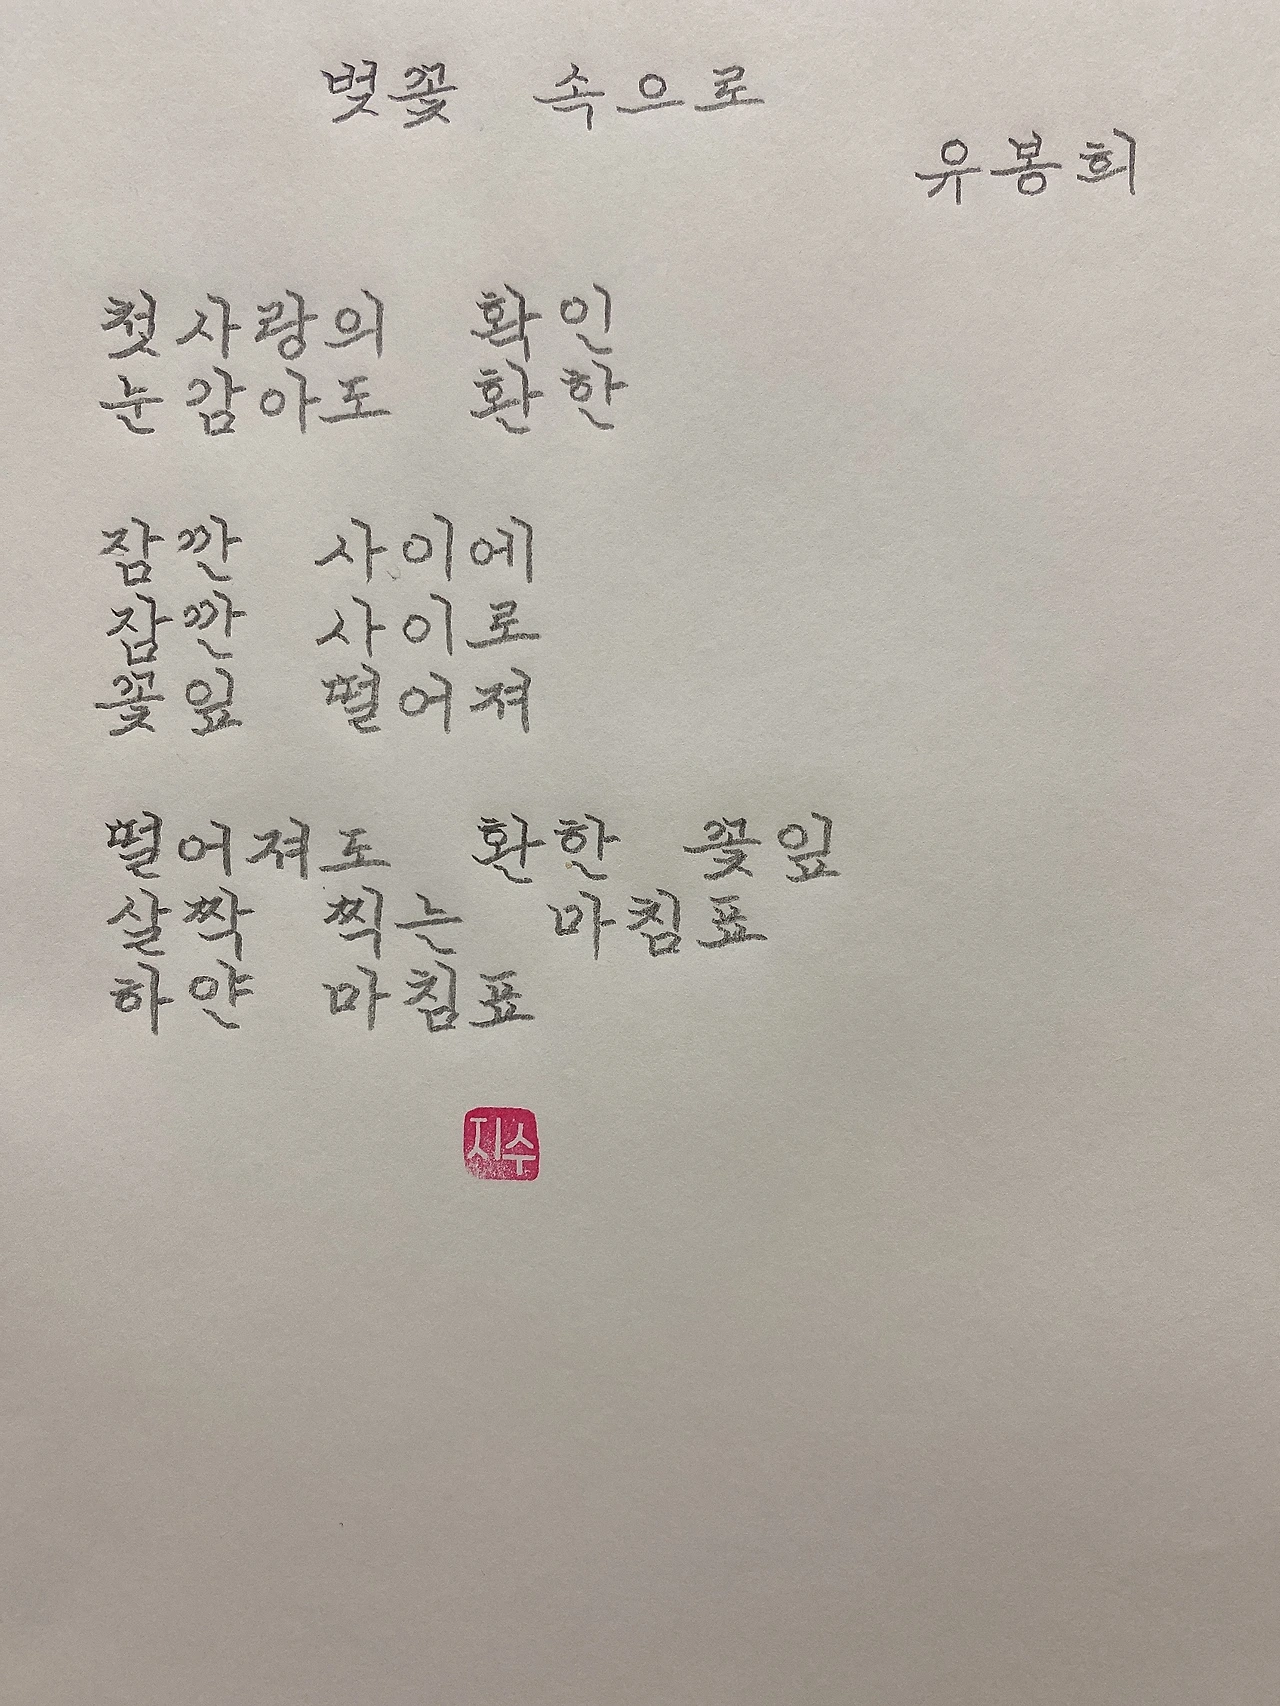 벚꽃 속으로
유봉희
첫사랑의 확인
눈감아도 환한
잠깐 사이에
잠깐 사이로
꽃잎 떨어져
떨어져도 환한 꽃잎
살짝 찍는 마침표
하얀 마침표
지수